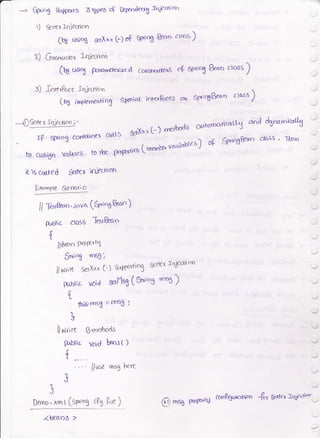 → Spring Supports 3 types of Dependency Injection
1) Setter Injection
(by using setXxx (-) of Spring Bean class)
2) Constructor Injection
(by using parameterized constructors of Spring Bean class)
3) Interface Injection
(by implementing Special Interfaces on SpringBean class)
① Setter Injection:-
If spring container calls setXxx (-) methods automatically and dynamically
to assign values to the properties (member variables) of SpringBean class. Then
it is called setter injection
Example Scenario:
// TestBean.java (Spring Bean)
public class TestBean
{
//Bean Property
String msg;
//write setXxx (-) Supporting Setter Injection
public void setMsg (String msg)
{
this.msg = msg;
}
//write B.methods
public void bm1()
{
....
---- //use msg here
}
}
Demo.xml (Spring Cfg file)
msg property configuration for Setter Injection
<beans>